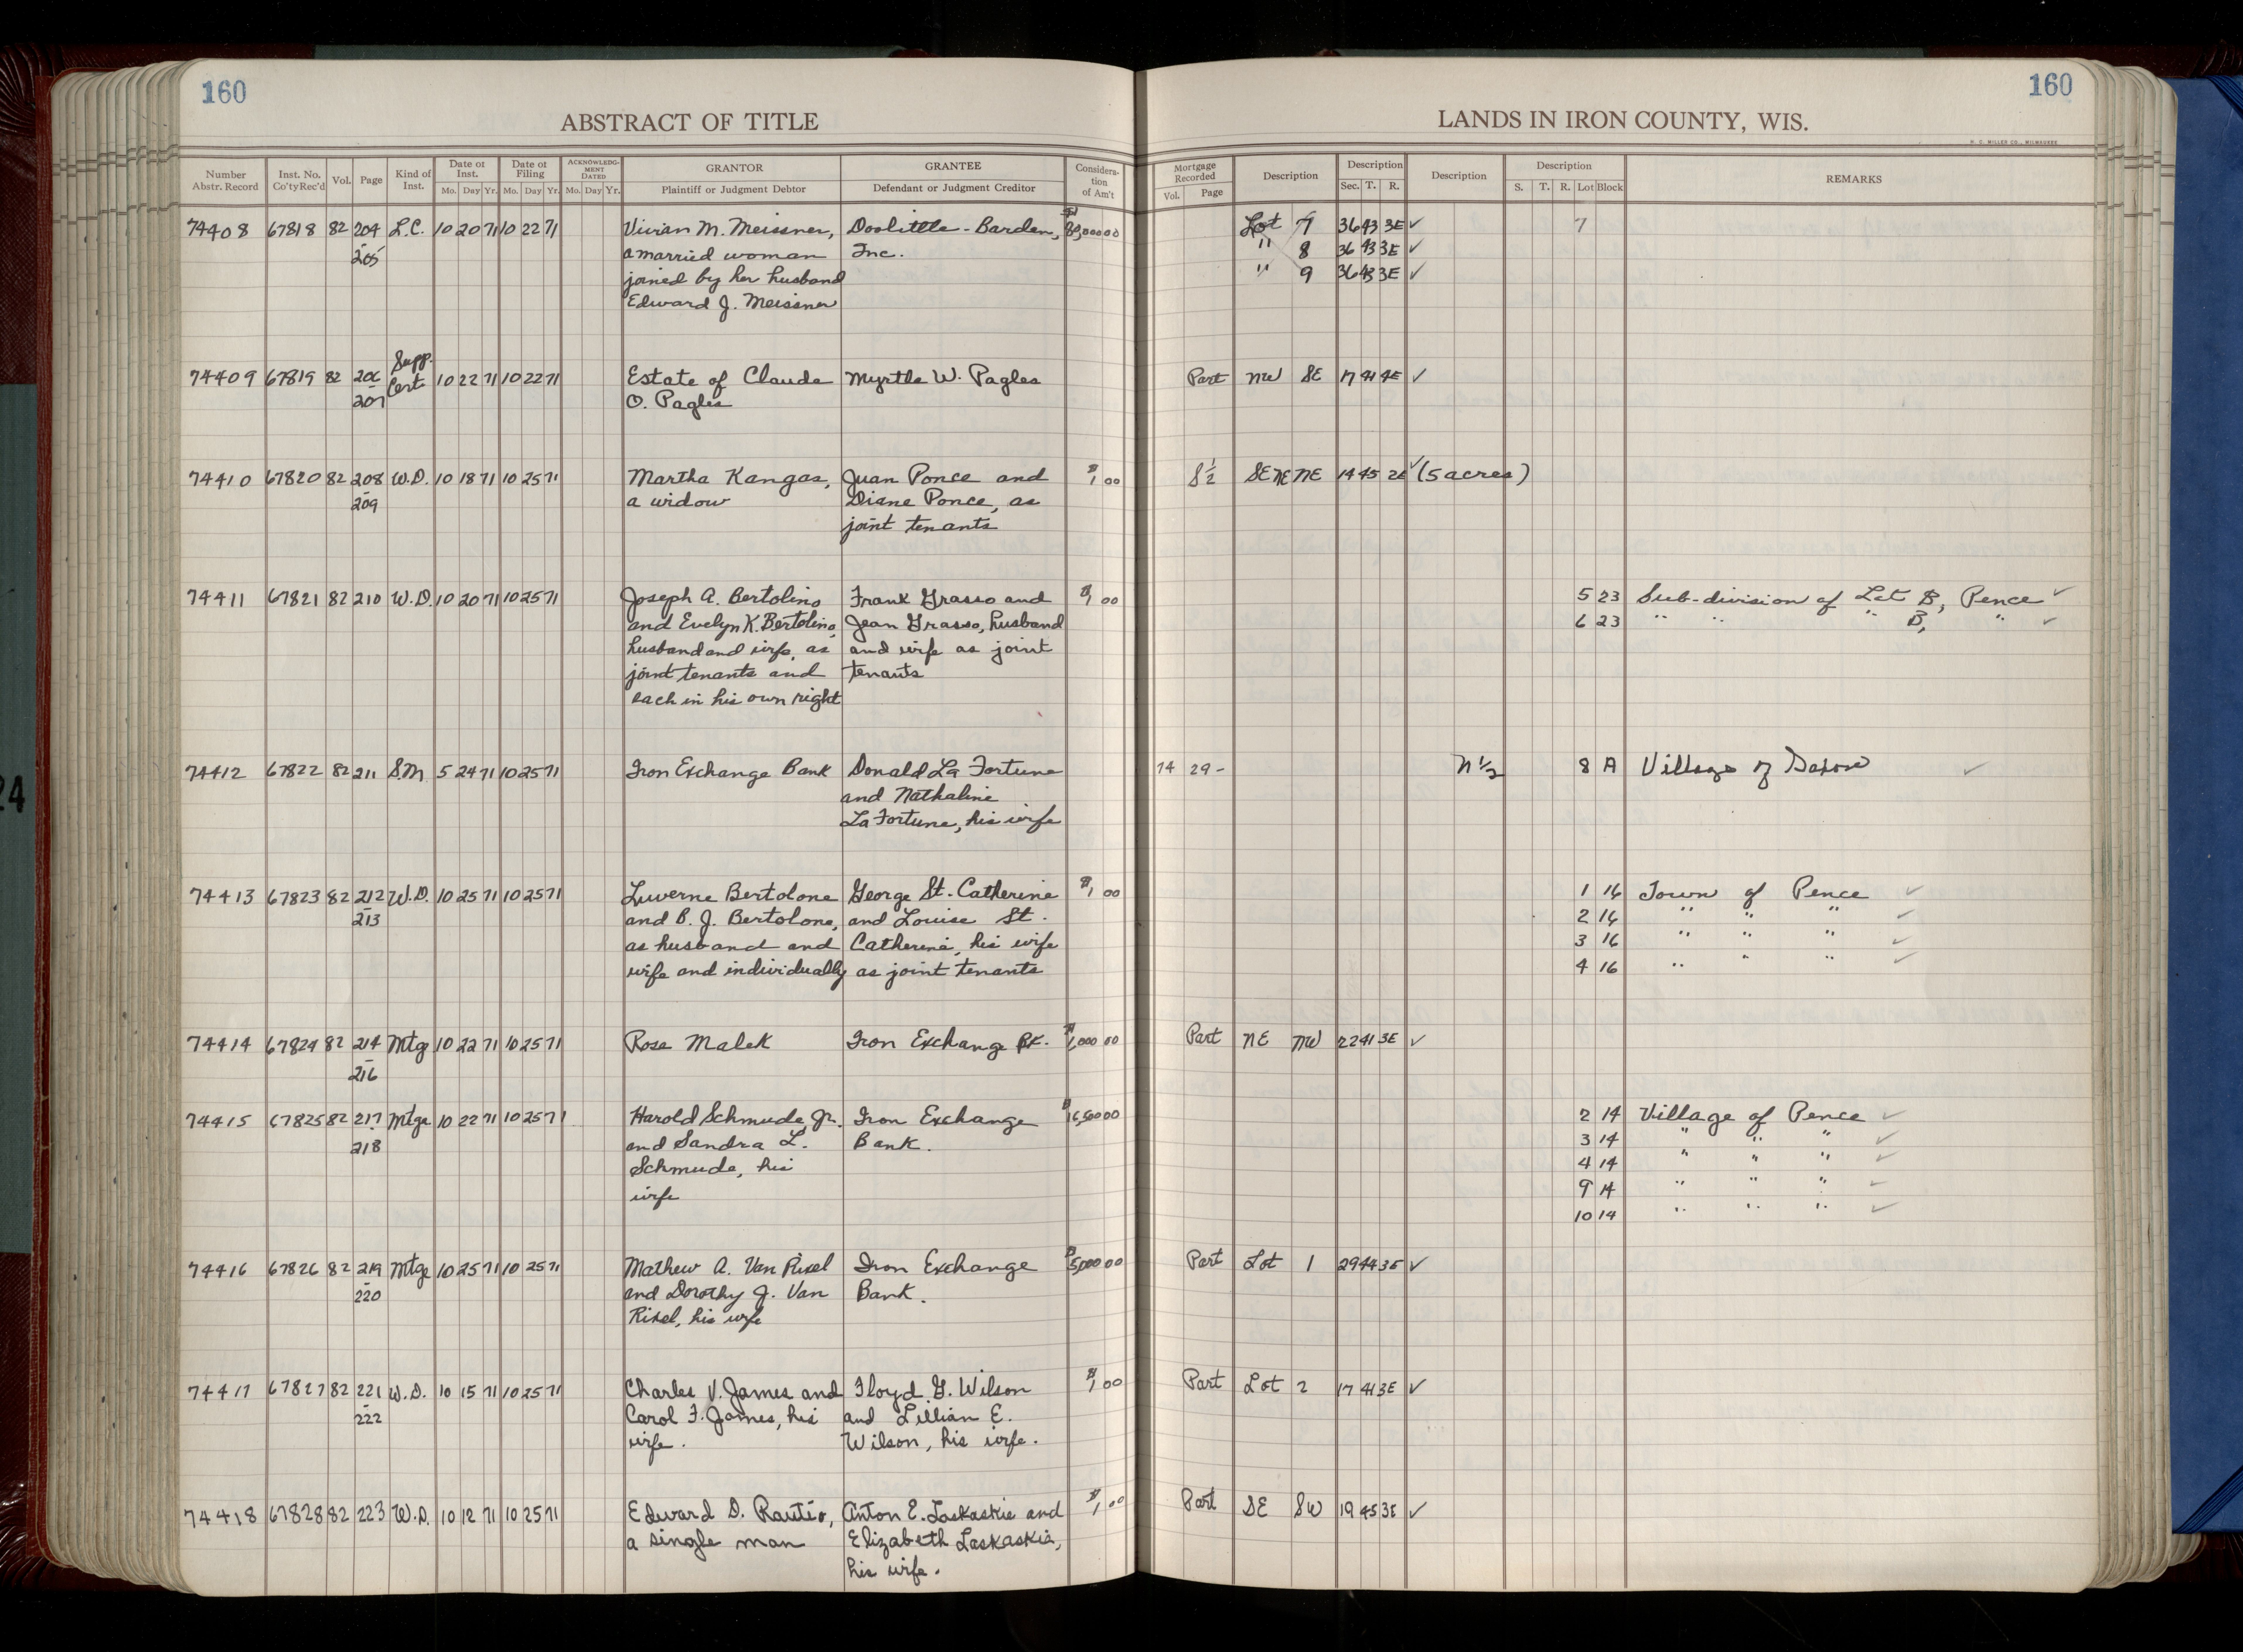 160
160
ABSTRACT OF TITLE
LANDS IN IRON COUNTY, WIS.
H. C. MILLER CO., MILWAUKEE
Number Abstr. Record Inst. No. Co'ty Rec'd Vol. Page Kind of Inst. Date of Inst. Mo. Day Yr. Date of Filing Mo. Day Yr. ACKNOWLEDGMENT DATED Mo. Day Yr. GRANTOR Plaintiff or Judgment Debtor GRANTEE Defendant or Judgment Creditor Consideration of Am't Mortgage Recorded Vol. Page Description Description Sec. T. R. Description Description S. T. R. Lot Block REMARKS
74408 67818 82 204 L.C. 10 20 71 10 22 71 Vivian M. Meissner, Doolittle-Barden, Lot 7 36 43 3E ✓ 7
205 a married woman Inc. " 8 36 43 3E ✓
joined by her husband " 9 36 43 3E ✓
Edward J. Meissner
74409 67819 82 206 Supp. Cert. 10 22 71 10 22 71 Estate of Claude Myrtle W. Pagles Part NW SE 17 41 4E ✓
207 O. Pagles
74410 67820 82 208 W.D. 10 18 71 10 25 71 Martha Kangas, Juan Ponce and $1 00 S½ SE NE NE 14 45 2E ✓ (5 acres)
209 a widow Diane Ponce, as
joint tenants
74411 67821 82 210 W.D. 10 20 71 10 25 71 Joseph A. Bertolino Frank Grasso and $1 00 5 23 Sub-division of Lot B, Pence ✓
and Evelyn K. Bertolino, Jean Grasso, husband 6 23 " " " B, " ✓
husband and wife, as and wife as joint
joint tenants and tenants
each in his own right
74412 67822 82 211 S.M 5 24 71 10 25 71 Iron Exchange Bank Donald La Fortune 74 29- N 1/2 8 A Village of Saxon ✓
and Nathaline
La Fortune, his wife
74413 67823 82 212 W.D. 10 25 71 10 25 71 Luverne Bertolone George St. Catherine $1 00 1 16 Town of Pence ✓
213 and B. J. Bertolone, and Louise St. 2 16 " " " ✓
as husband and Catherine, his wife 3 16 " " " ✓
wife and individually as joint tenants 4 16 " " " ✓
74414 67824 82 214 Mtge 10 22 71 10 25 71 Rose Malek Iron Exchange Bk. Part NE NW 22 41 3E ✓
216
74415 67825 82 217 Mtge 10 22 71 10 25 71 Harold Schmude, Jr. Iron Exchange $16,500 00 2 14 Village of Pence ✓
218 and Sandra L. Bank. 3 14 " " " ✓
Schmude, his 4 14 " " " ✓
wife 9 14 " " " ✓
10 14 " " " ✓
74416 67826 82 219 Mtge 10 25 71 10 25 71 Mathew A. Van Rixel Iron Exchange $5,000 00 Part Lot 1 29 44 3E ✓
220 and Dorothy J. Van Bank.
Rixel, his wife
74417 67827 82 221 W.D. 10 15 71 10 25 71 Charles V. James and Floyd G. Wilson $1 00 Part Lot 2 17 41 3E ✓
222 Carol F. James, his and Lillian E.
wife. Wilson, his wife.
74418 67828 82 223 W.D. 10 12 71 10 25 71 Edward D. Rautio, Anton E. Laskaskie and $1 00 Part SE SW 19 45 3E ✓
a single man Elizabeth Laskaskia,
his wife.
24